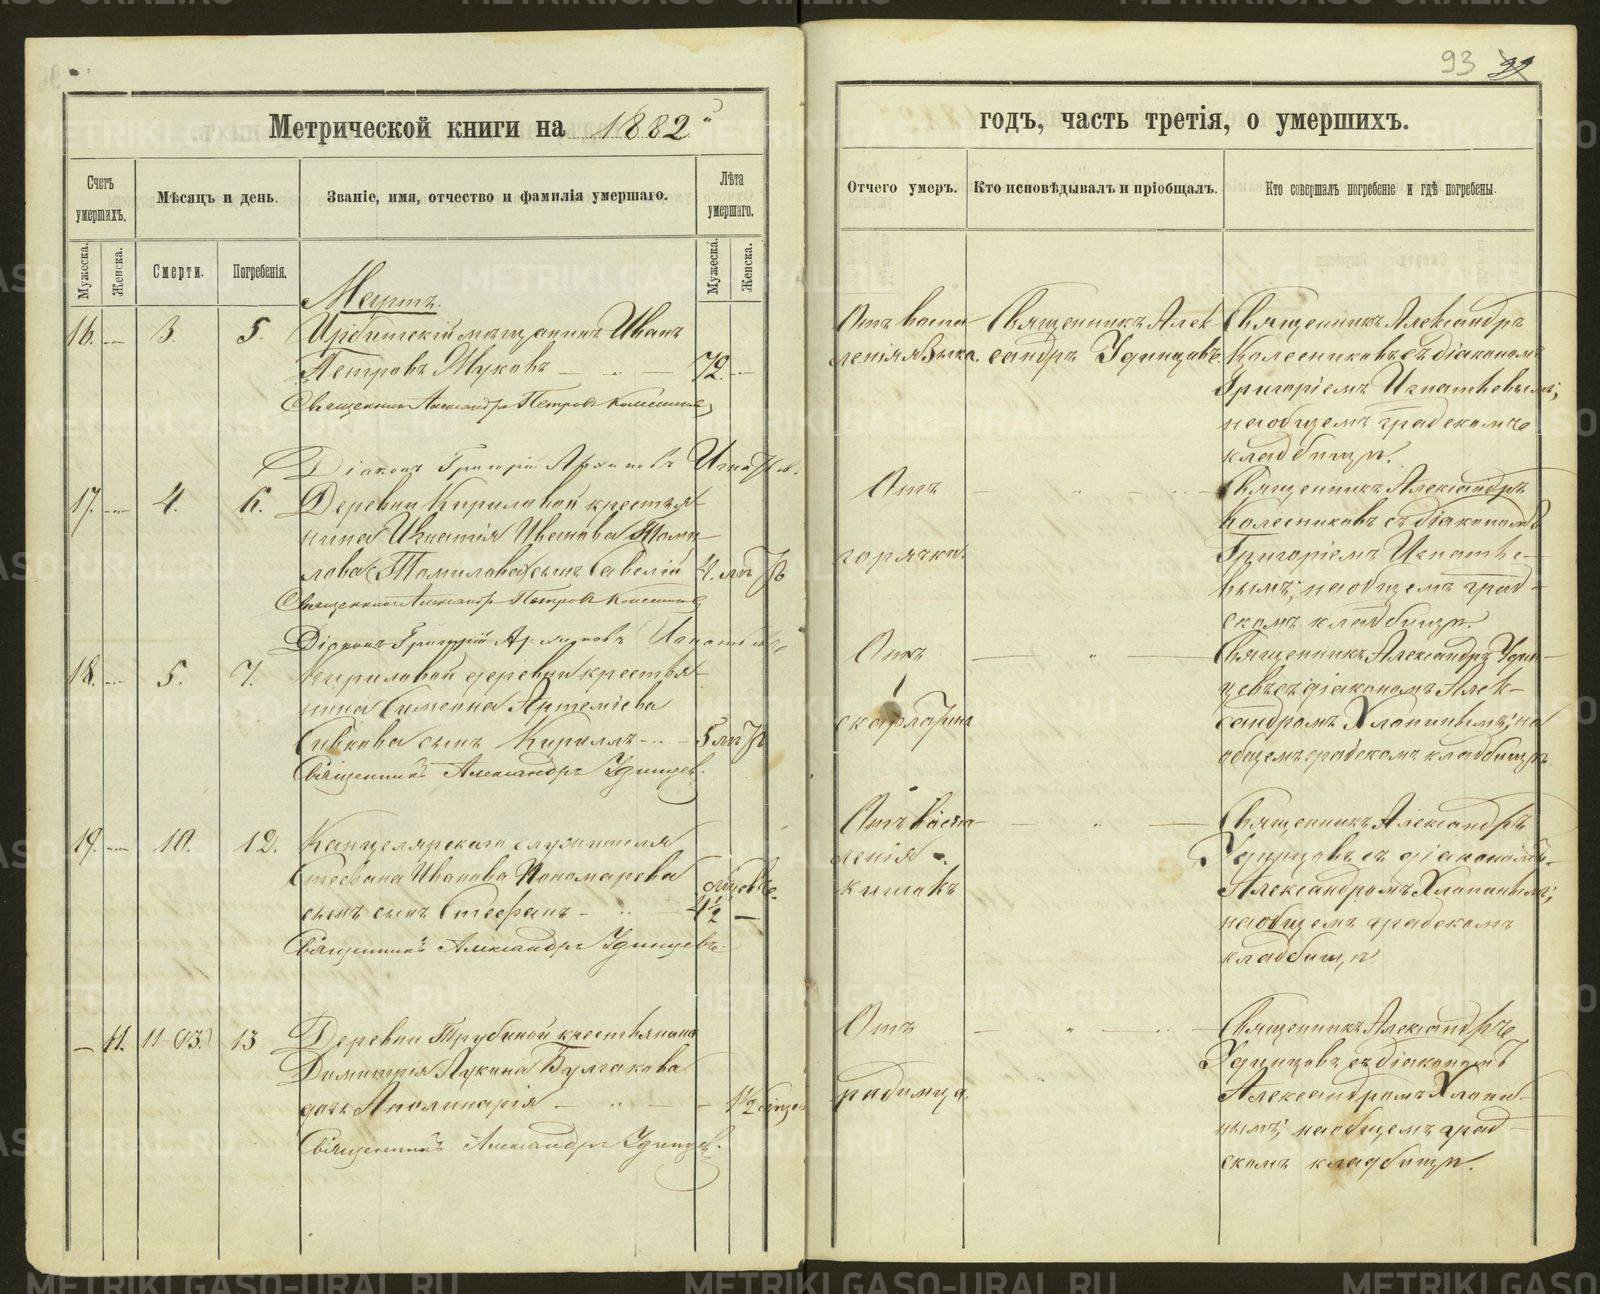 93 99
Метрической книги на 1882
годъ, часть третія, о умершихъ.
Счетъ умершихъ.
Мѣсяцъ и день.
Званіе, имя, отчество и фамилія умершаго.
Лѣта умершаго.
Отчего умеръ.
Кто исповѣдывалъ и пріобщалъ.
Кто совершалъ погребеніе и гдѣ погребены.
Мужеска.
Женска.
Смерти.
Погребенія.
Мужеска.
Женска.
Мартъ.
16. 3. 5. Ирбитскій мѣщанинъ Иванъ
Петровъ Жуковъ 72.
Священникъ Александръ Петровъ Колесниковъ
Діаконъ Григорій Архиповъ Игнатьев
Отъ воспа-
ленія языка.
Священникъ Алек
сандръ Удинцовъ.
Священникъ Александръ
Колесниковъ съ діакономъ
Григоріемъ Игнатьевымъ;
на общемъ градскомъ
кладбищѣ.
17. 4. 6. Деревни Кириловой крестья-
нина Игнатія Иванова Томи-
лова (Томилова) сынъ Савелій 4. лѣтъ
Священникъ Александръ Петровъ Колесниковъ
Діаконъ Григорій Архиповъ Игнатьев
Отъ
горячки.
Священникъ Александръ
Колесниковъ съ діакономъ
Григоріемъ Игнатье-
вымъ; на общемъ град-
скомъ кладбищѣ.
18. 5. 7. Кириловой деревни крестья-
нина Симеона Артеміева
Сивкова сынъ Кириллъ 5 лѣтъ
Священникъ Александръ Удинцев.
Отъ
скарлатина
Священникъ Александръ Удин-
цевъ съ діакономъ Алек-
сандромъ Хлопинымъ; на
общемъ градскомъ кладбищѣ
19. 10. 12. Канцелярскаго служителя
Стефана Иванова Пономарева
сынъ сынъ Стефанъ 4½
мѣсяце.
Священникъ Александръ Удинцевъ.
Отъ воспа-
ленія
кишокъ
Священникъ Александръ
Удинцовъ съ діакономъ
Александромъ Хлопинымъ;
на общемъ градскомъ
кладбищѣ
11. 11 (13.) 13 Деревни Трубиной крестьянина
Димитрія Лукина Булгакова
дочь Аполинарія 1½ мѣсяц
Священникъ Александръ Удинцев.
Отъ
родимца.
Священникъ Александръ
Удинцовъ съ діакономъ
Александромъ Хлопи-
нымъ; на общемъ град-
скомъ кладбищѣ.
METRIKI.GASO-URAL.RU